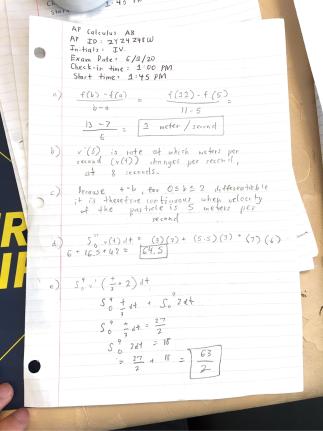 AP Calculus AB
AP ID: 2Y24248W
Initials: IV
Exam Date: 6/2/20
Check-in time: 1:00 PM
Start time: 1:45 PM
a) f(b)-f(a) / b-a = f(11)-f(5) / 11-5 =
13-7 / 6 = 1 meter/second
b) v'(8) is rate at which meters per
second (v(t)) changes per second,
at 8 seconds.
c) Because for 0≤ ≤ differentiable
it is therefore continuous when velocity
of the particle is 5 meters per
second
d) v(t)dt = (3)(2) + (5.5)(3) + (7)(6)
6 + 16.5 + 42 = 64.5
e) (t/3 + 2) dt
t/3 dt + 2dt
t/3 dt = 27/2
2dt = 18
= 27/2 + 18 = 63/2